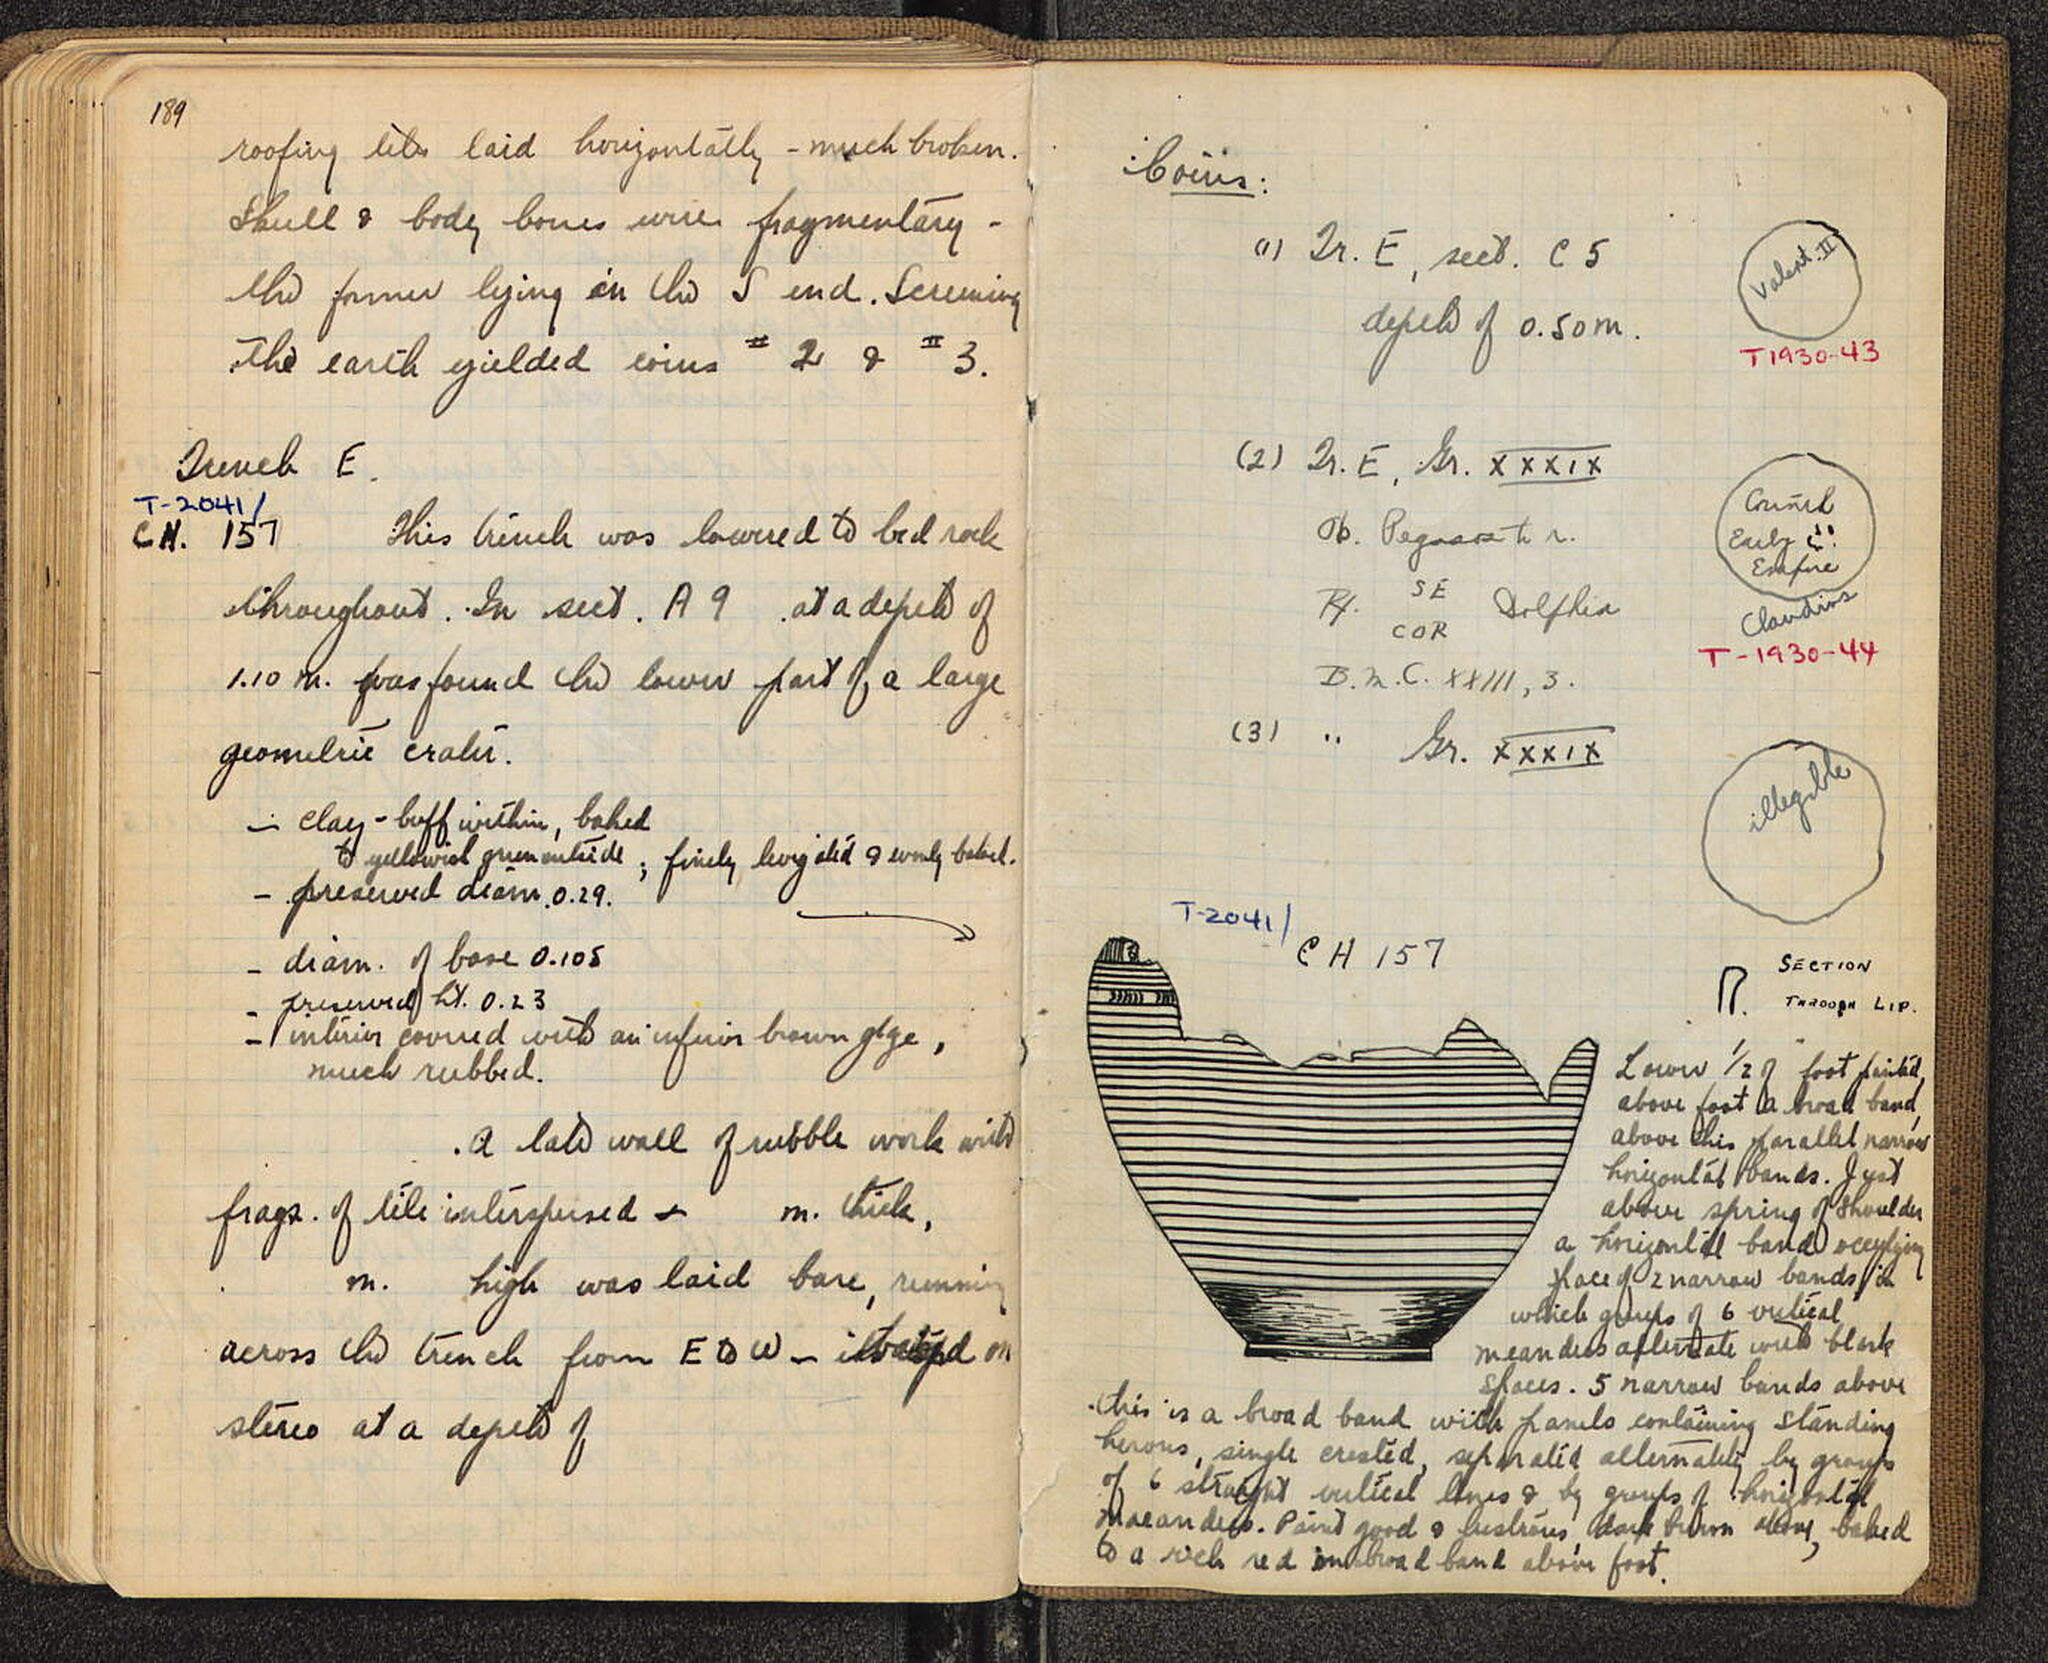 189
roofing tiles laid horizontally - much broken.
Skull & body bones were fragmentary -
the former lying in the S end. Screening
the earth yielded coins # 2 & # 3.
Trench E.
T-2041/
C.H. 157 This trench was lowered to bed rock
throughout. In sect. A 9 at a depth of
1.10 m. was found the lower part of a large
geometric crater.
- clay - buff within, baked
to yellowish green outside; finely levigated & evenly baked.
- preserved diam. 0.29.
- diam. of base 0.105
- preserved ht. 0.23
- interior covered with an inferior brown glaze,
much rubbed.
A late wall of rubble work with
frags. of tile interspersed m. thick,
m. high was laid bare, running
across the trench from E to W - it on
stereo at a depth of
Coins:
(1) Tr. E, sect. C 5
depth of 0.50 m.
Valent. II
T1930-43
(2) Tr. E, Gr. XXXIX
Ob. Pegasos to r.
Rx. SE
COR Dolphin
B.M.C. XXIII, 3.
Corinth
Early
Empire
Claudius
T-1930-44
(3) " Gr. XXXIX
illegible
T-2041/
CH 157
SECTION
THROUGH LIP.
Lower 1/2 of foot painted,
above foot a broad band,
above this parallel narrow
horizontal bands. Just
above spring of shoulder
a horizontal band occupying
place of 2 narrow bands in
which groups of 6 vertical
meanders alternate with blank
spaces. 5 narrow bands above
this is a broad band with panels containing standing
herons, single crested, separated alternately by groups
of 6 straight vertical lines & by groups of horizontal
maeanders. Paint good & lustrous, dark brown above, baked
to a rich red on broad band above foot.